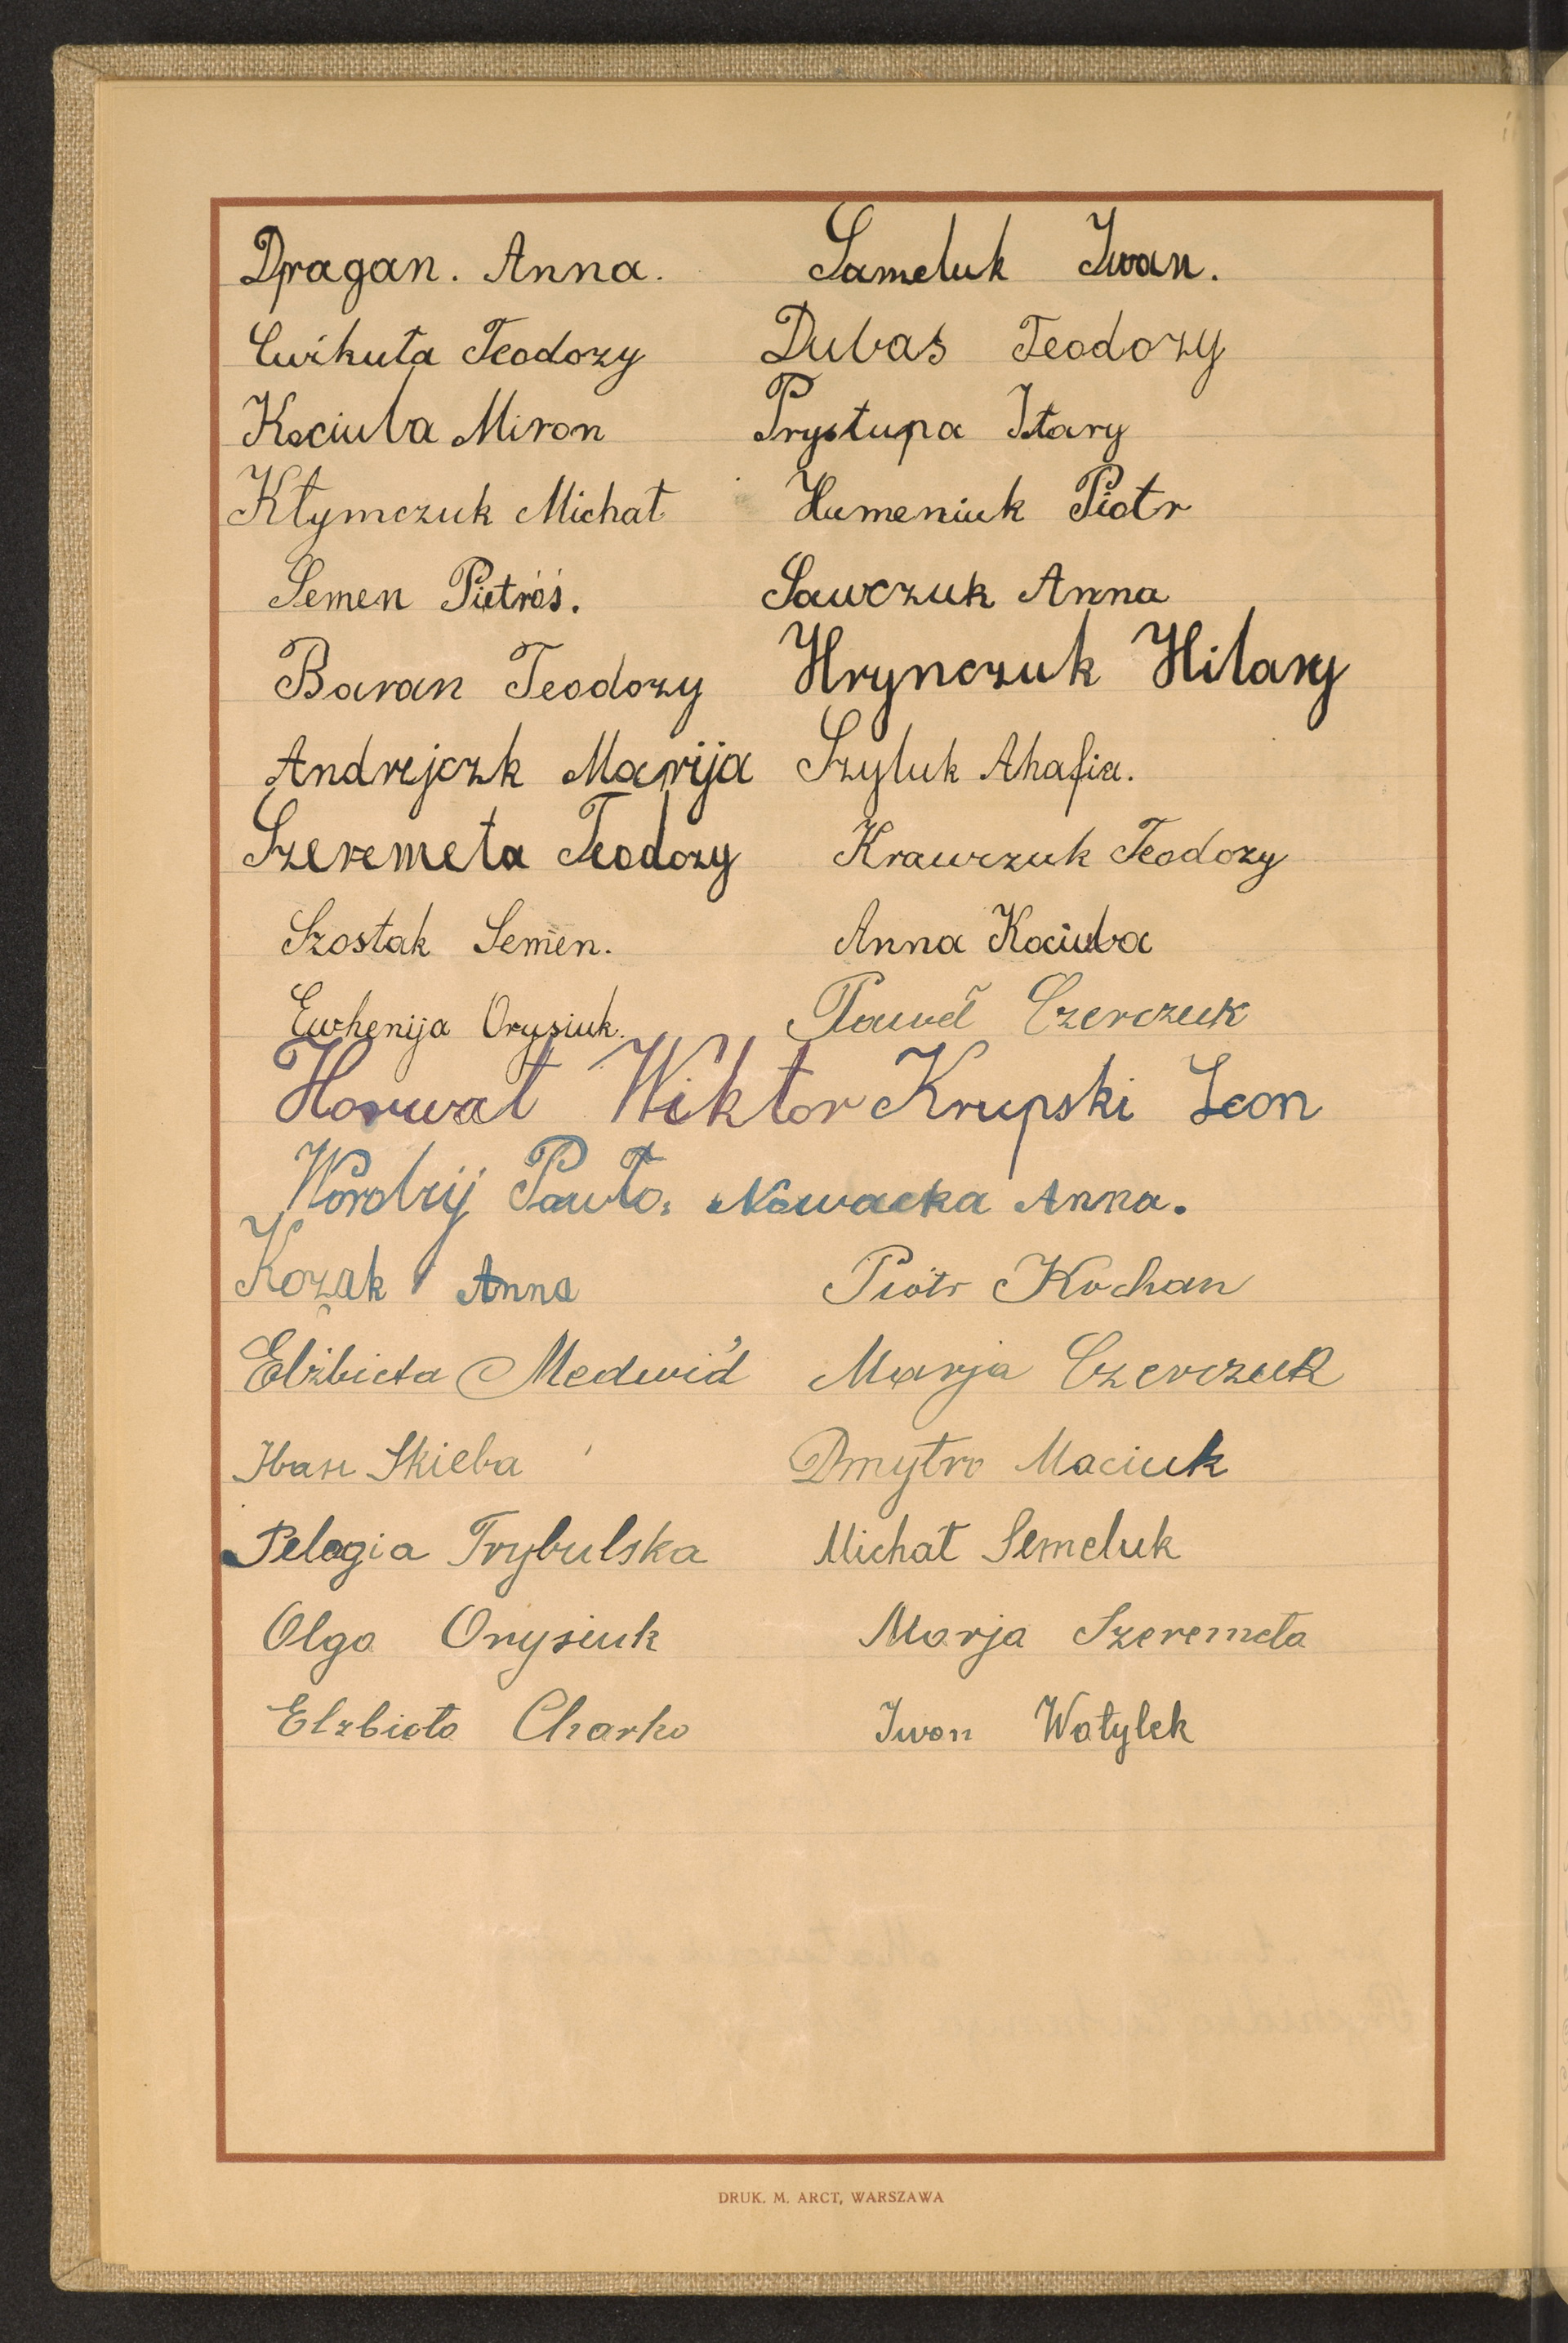 Dragan. Anna. Sameluk Iwan.
Cwikuła Teodozy Dubas Teodozy
Kociuba Miron Prystupa Ilary
Kłymczuk Michał Humeniuk Piotr
Semen Pietroś. Sawczuk Anna
Baran Teodozy Hrynczuk Hilary
Andrejczk Marija Szyluk Ahafia.
Szeremeta Teodozy Krawczuk Teodozy
Szostak Semen. Anna Kociuba
Ewhenija Orysiuk. Paweł Czerczuk
Horwat Wiktor Krupski Leon
Worobij Pawło. Nowacka Anna.
Kozak Anna Piotr Kochan
Elżbieta Medwid Marja Czerczuk
Iwan Skieba Dmytro Maciuk
Pelagia Trybulska Michał Semeluk
Olga Onysiuk Marja Szeremeta
Elzbieta Charko Iwan Watylek
DRUK. M. ARCT, WARSZAWA